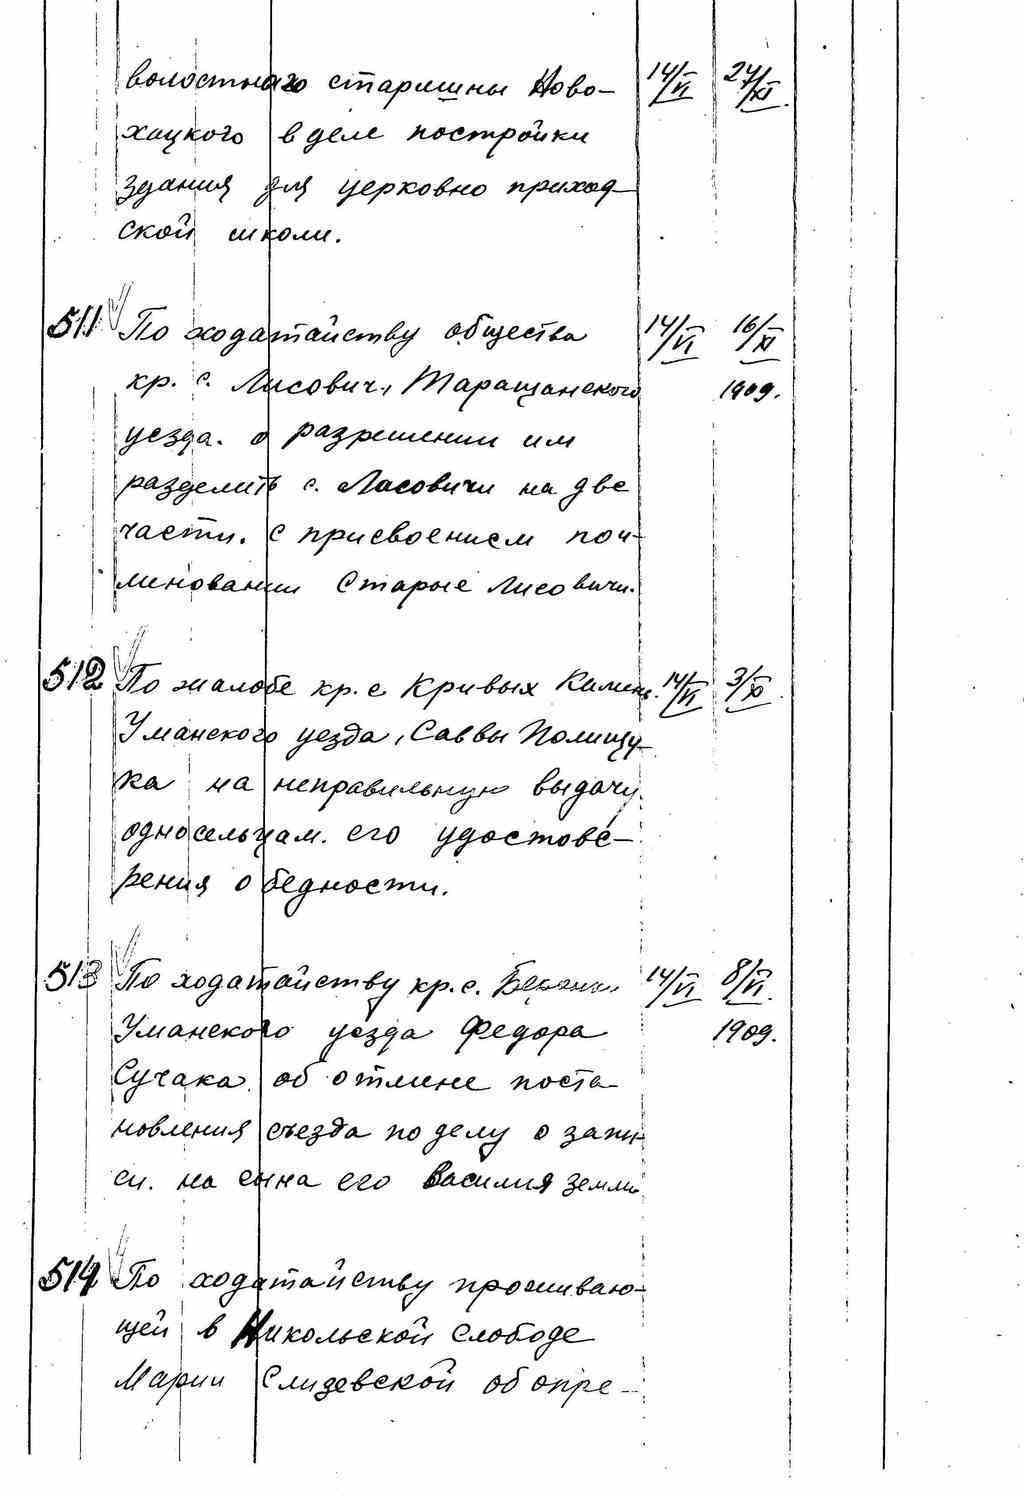 волостного старшины Ново- 14/VI 27/XI.
хацкого в деле постройки
здания для церковно приход-
ской школи.
511 По ходатайству общества 14/VI 16/XI
кр. с. Лисович, Таращанского 1909.
уезда. о разрешении им
разделить с. Лисовичи на две
части. с присвоением пои-
меновании Старые Лисовичи.
512 По жалобе кр. с Кривых Колень 14/VI 3/XI
Уманского уезда, Саввы Полищу-
ка на неправильную выдачу
односельцам. его удостове-
рения о бедности.
513 По ходатайству кр. с. 14/VI 8/VI.
Уманского уезда Федора 1909.
Сучака об отмене поста-
новления съезда по делу о запи-
си. на сына его Василия земли
514 По ходатайству проживаю-
щей в Никольской Слободе
Марии Слизевской об опре-